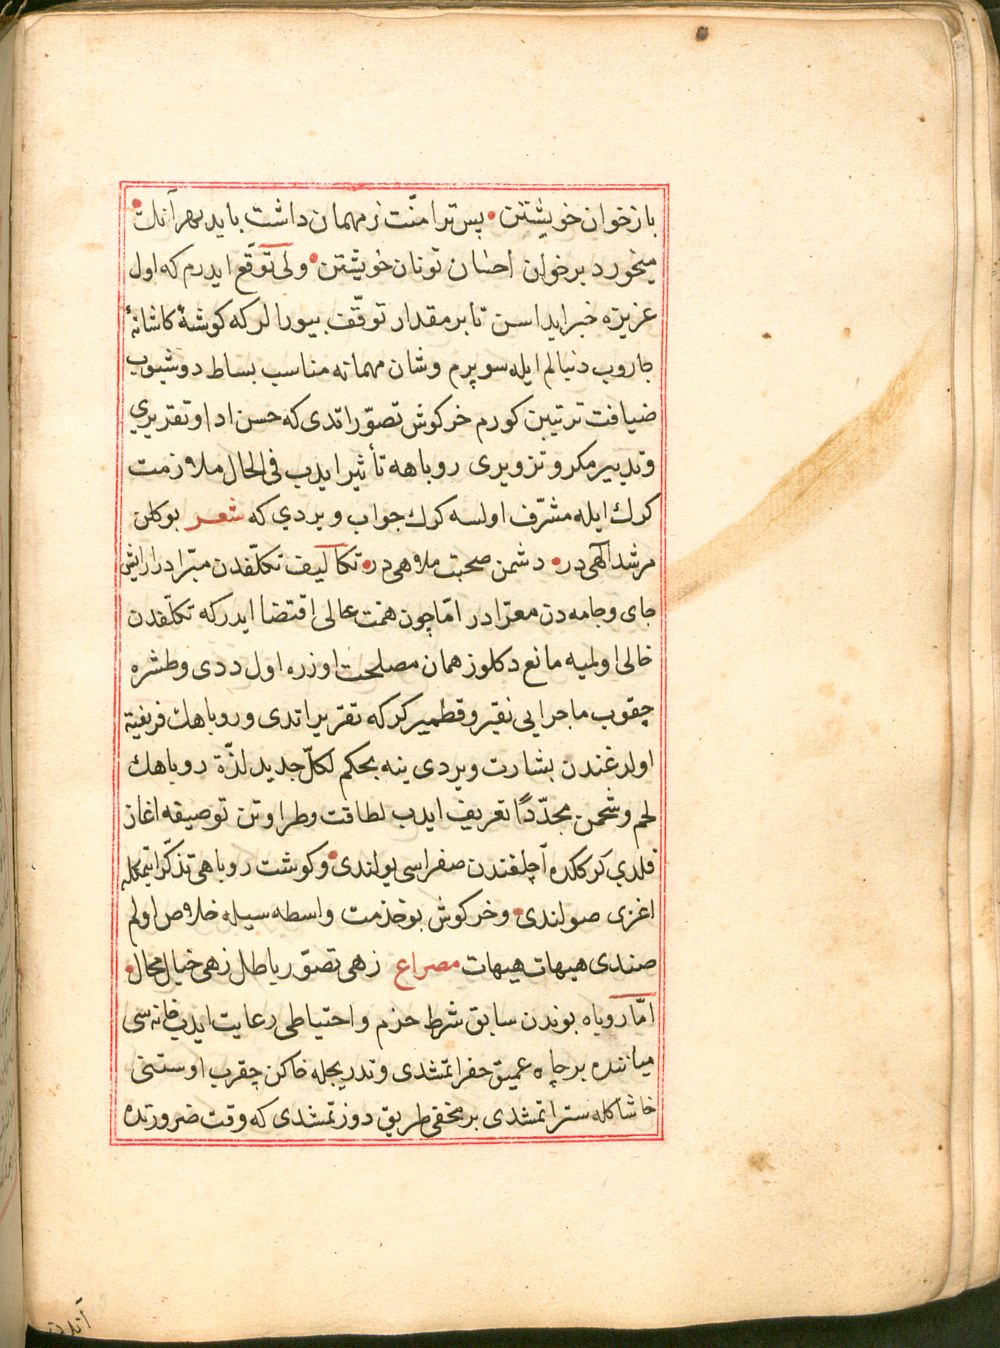 باز خوان خویشتن • پس ترا منّت ز مهمان داشت باید بهر آنك •
میخورد بر خوان احسان تو نان خویشتن • ولی توقّع ایدرم که اول
عزیزه خبر ایداسن تا بر مقدار توقّف بیورالر که کوشهٔ کاشانهٔ
جاروب دنبالم ایله سوپرم و شان مهمانه مناسب بساط دوشیوب
ضیافت ترتیبن کورم خرکوش تصوّر اتدی که حسن ادا و تقریری
و تدبیر مکر و تزویری روباهه تأثیر ایدب فی الحال ملازمت
کرك ایله مشرّف اولسه کرك جواب ویردی که شعر بو کلن
مرشد الٓهی در • دشمن صحبت ملاهی در • تکالیف تکلّفدن مبرّادر آرایش
جای و جامه دن معرّادر امّا چون همّت عالی اقتضا ایدر که تکلّفدن
خالی اولمیه مانع دکلوز همان مصلحت اوزره اول ددی و طشره
چقوب ماجرایی نقیر و قطمیر کرکه تقریر اتدی و روباهك فریفته
اولدغندن بشارت ویردی ینه بحکم لکلّ جدید لذّة روباهك
لحم و شحمن مجدّداً تعریف ایدب لطافت و طراوتن توصیفه اغاز
قلدی کرکك ده آچلقندن صفراسی بولندی • و کوشت روباهی تذکّر اتمکله
اغزی صولندی • و خرکوش بو خدمت واسطه سیله خلاص اولم
صندی هیهات هیهات مصراع زهی تصوّر باطل زهی خیال محال •
امّا روباه بوندن سابق شرط حزم و احتیاطی رعایت ایدب خانه سی
میاننده بر چاه عمیق حفر اتمشدی و تدریجله خاکن چقرب اوستنی
خاشاکله ستر اتمشدی بر مخفی طریق دوزتمشدی که وقت ضرورتده
آندن